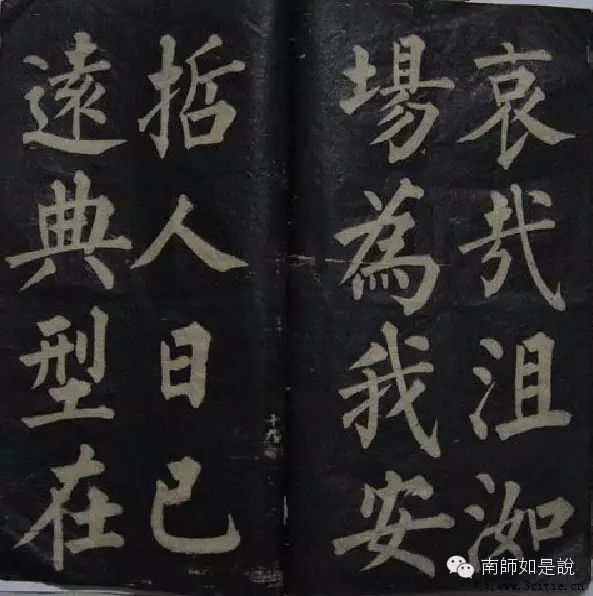 哀哉沮洳
場為我安
哲人日已
遠典型在
南師如是說
www.3zitie.cn